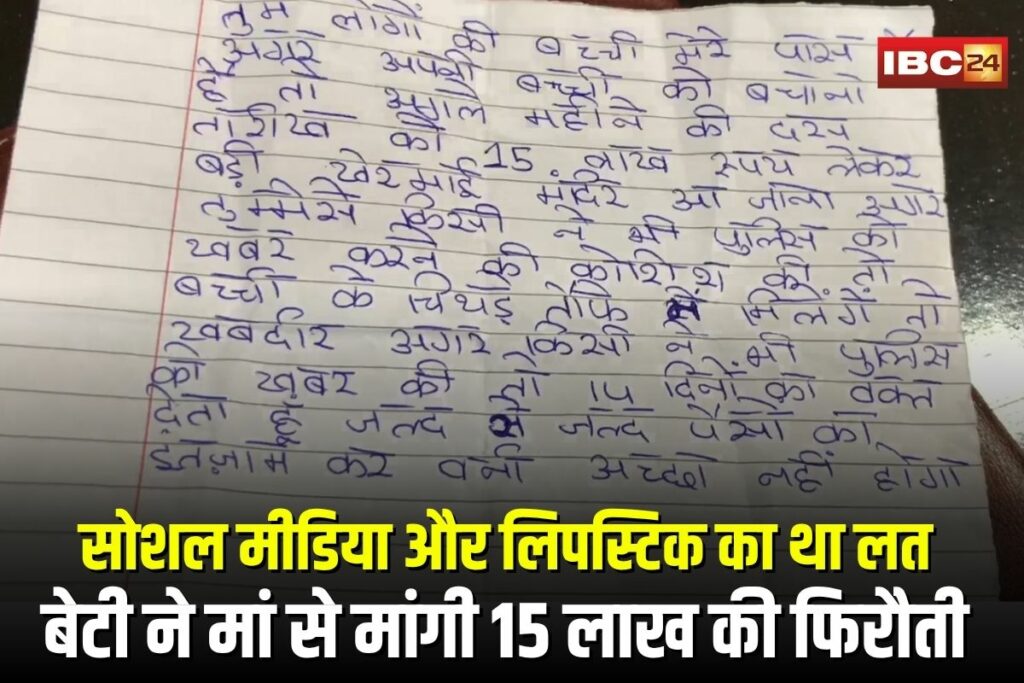 तुम लोगों की बच्ची मेरे पास
IBC24
है अगर अपनी बच्ची को बचाना
है तो अगले महीने की दस
तारीख को 15 लाख रूपय लेकर
बड़ी खेरमाई मंदिर आ जाना अगर
तुममिसे किसी ने भी पुलिस को
खबर करने की कोशिश की तो
बच्ची के चिथड़े तोफे में मिलेगें तो
खबरदार अगर किसी ने भी पुलिस
को ख़बर की तो 14 दिनों का वक्त
देता हूँ जल्द से जल्द पैसो का
इंतज़ाम कर वर्ना अच्छा नहीं होगा
सोशल मीडिया और लिपस्टिक का था लत
बेटी ने मां से मांगी 15 लाख की फिरौती